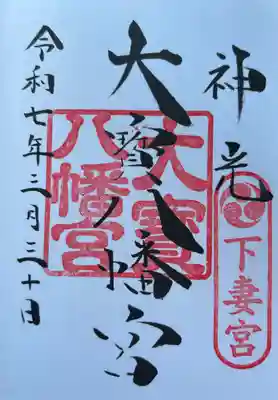 神光
下妻宮
大寳八幡宮
大寳八幡宮
令和七年三月三十日